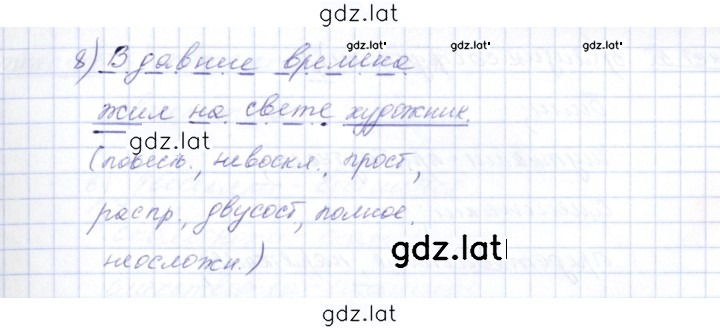 gdz.latˈ
gdz.latˈ gdz.latˈ
8) В давние времена
жил на свете художник.
gdz.latˈ
(повеств., невоскл., прост.,
распр., двусост., полное,
gdz.latˈ
неосложн.)
gdz.latˈ
gdz.latˈ